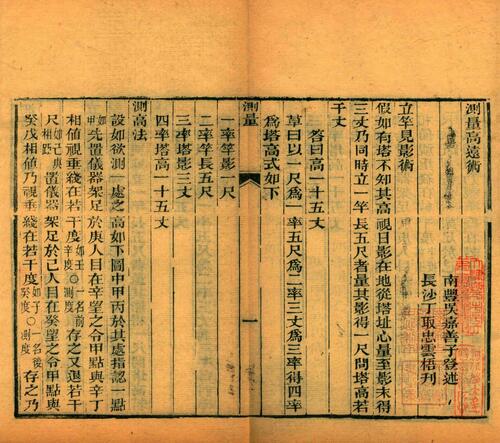 測量高遠術
南豐吳嘉善子登述
長沙丁取忠雲梧刊
立竿見影術
假如有塔不知其高視日影在地從塔址心量至影末得
三丈乃同時立一竿長五尺者量其影得一尺問塔高若
干丈
答曰高一十五丈
草曰以一尺爲一率五尺爲二率三丈爲三率得四率
爲塔高式如下
測量
一
一率竿影一尺
二率竿長五尺
三率塔影三丈
四率塔高一十五丈
測高法
設如欲測一處之高如下圖中甲丙於其處指認一點
如甲先置儀器架足於庚人目在辛望之令甲點與辛丁
相値視垂綫在若干度如壬辛度〇一名前測度存之又退若干
尺如己庚相距置儀器架足於己人目在癸望之令甲點與
癸戊相値乃視垂綫在若干度如子癸度〇一名後測度存之乃